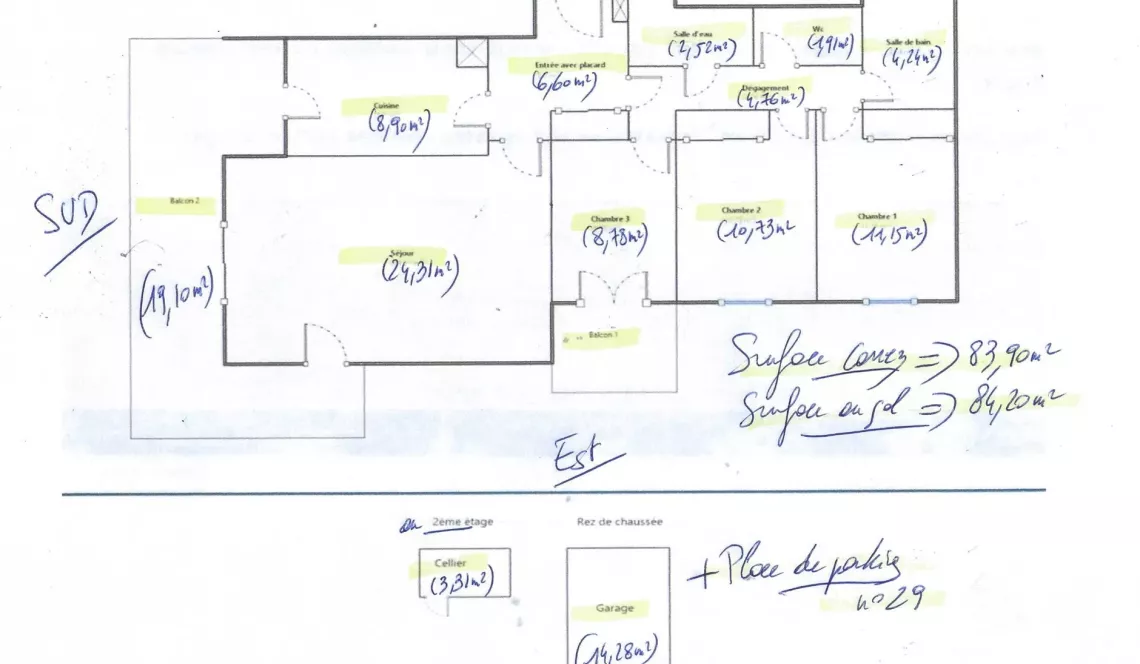 Salle d'eau
(2,52m²)
Wc
(1,91m²)
Salle de bain
(4,24m²)
Entrée avec placard
(6,60m²)
Dégagement
(4,76m²)
Cuisine
(8,90m²)
SUD
Balcon 2
(19,10m²)
Séjour
(24,31m²)
Chambre 3
(8,78m²)
Chambre 2
(10,73m²
Chambre 1
(11,15m²)
Balcon 1
Surface Carrez => 83,90m²
Surface au sol => 84,20m²
Est
au 2ème étage
Rez de chaussée
Cellier
(3,31m²)
Garage
(14,28m²)
+ Place de parking
n° 29